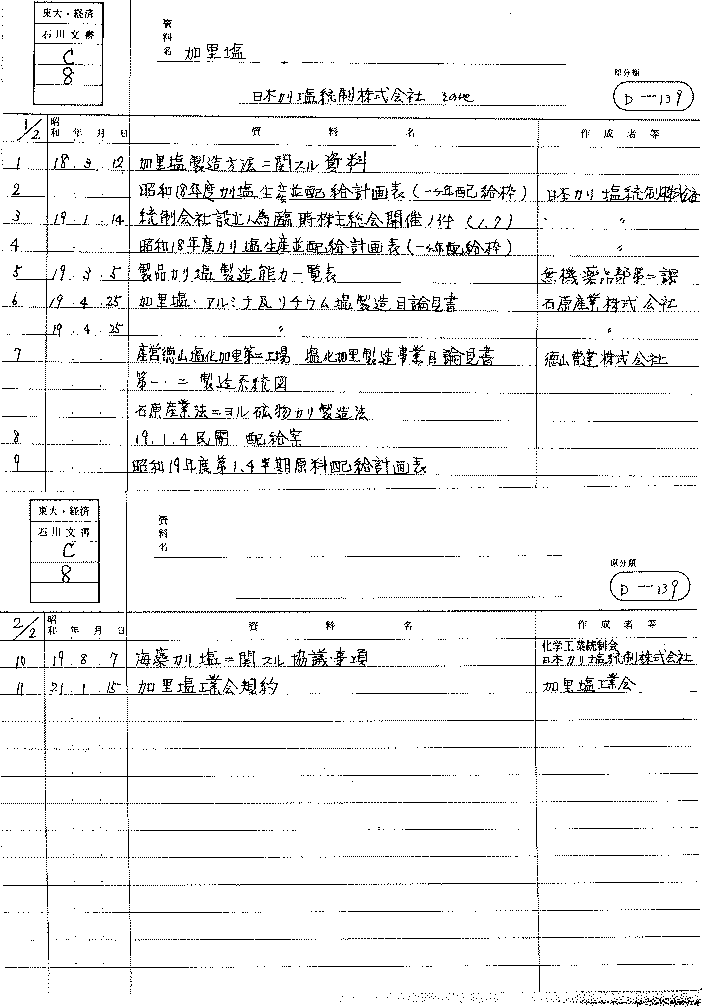 東大・経済
石川文書
C
8
資料名 加里塩
日本カリ塩統制株式会社 その他
原分類
D-139
1/2 昭和 年 月 日 資料名 作成者等
1 18.3.12 加里塩製造方法ニ関スル資料
2 . . 昭和18年度カリ塩生産並配給計画表(一ヶ年配給枠) 日本カリ塩統制株式会社
3 19.1.14 統制会社設立ノ為臨時株主総会開催ノ件 (1.2) 〃 〃
4 . . 昭和18年度カリ塩生産並配給計画表(一ヶ年配給枠) 〃
5 19.3.5 製品カリ塩製造能力一覧表 無機薬品部第二課
6 19.4.25 加里塩・アルミナ及リチウム塩製造目論見書 石原産業株式会社
19.4.25 〃 〃
7 . . 産営徳山塩化加里第二工場 塩化加里製造事業目論見書 徳山曹達株式会社
. . 第一・二 製造系統図
. . 石原産業法ニヨル砿物カリ製造法
8 . . 19.1.4 民間 配給案
9 . . 昭和19年度第1.4半期原料配給計画表
東大・経済
石川文書
C
8
資料名
原分類
D-139
2/2 昭和 年 月 日 資料名 作成者等
化学工業統制会
10 19.8.7 海藻カリ塩ニ関スル協議事項 日本カリ塩統制株式会社
11 21.1.15 加里塩工業会規約 加里塩工業会